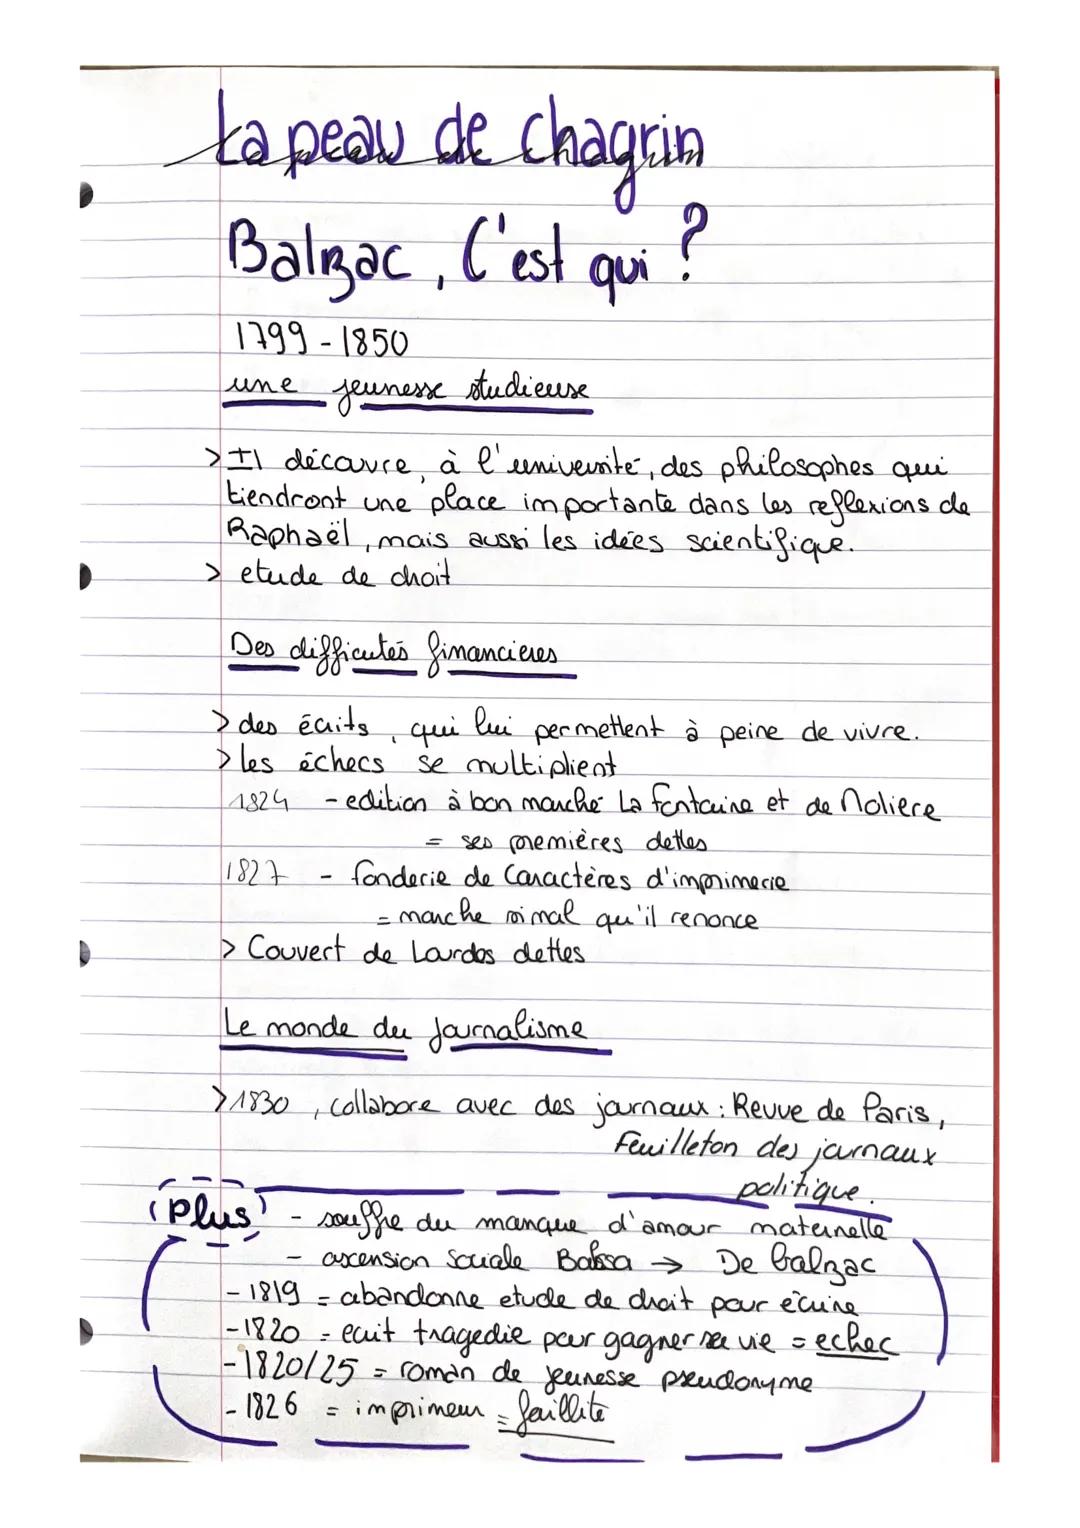 La peau de chagrin
Balzac, C'est qui ?
1799 - 1850
une jeunesse studieuse
> Il découvre, à l'université, des philosophes qui
tiendront une place importante dans les reflexions de
Raphaël, mais aussi les idées scientifique.
> etude de droit
Des difficutés financieres
> des écrits, qui lui permettent à peine de vivre.
> les échecs se multiplient
1824 - edition à bon marché La fontaine et de Moliere
= ses premières dettes
1827 - fonderie de Caractères d'imprimerie
= marche si mal qu'il renonce
> Couvert de Lourdes dettes
Le monde du journalisme
> 1830, collabore avec des journaux : Revue de Paris,
Feuilleton des journaux
politique.
Plus - souffre du manque d'amour maternelle
- ascension sociale Balssa → De balzac
- 1819 = abandonne etude de droit pour écrire
- 1820 = ecrit tragedie pour gagner sa vie = echec
- 1820/25 = roman de jeunesse pseudonyme
- 1826 = imprimeur = faillite